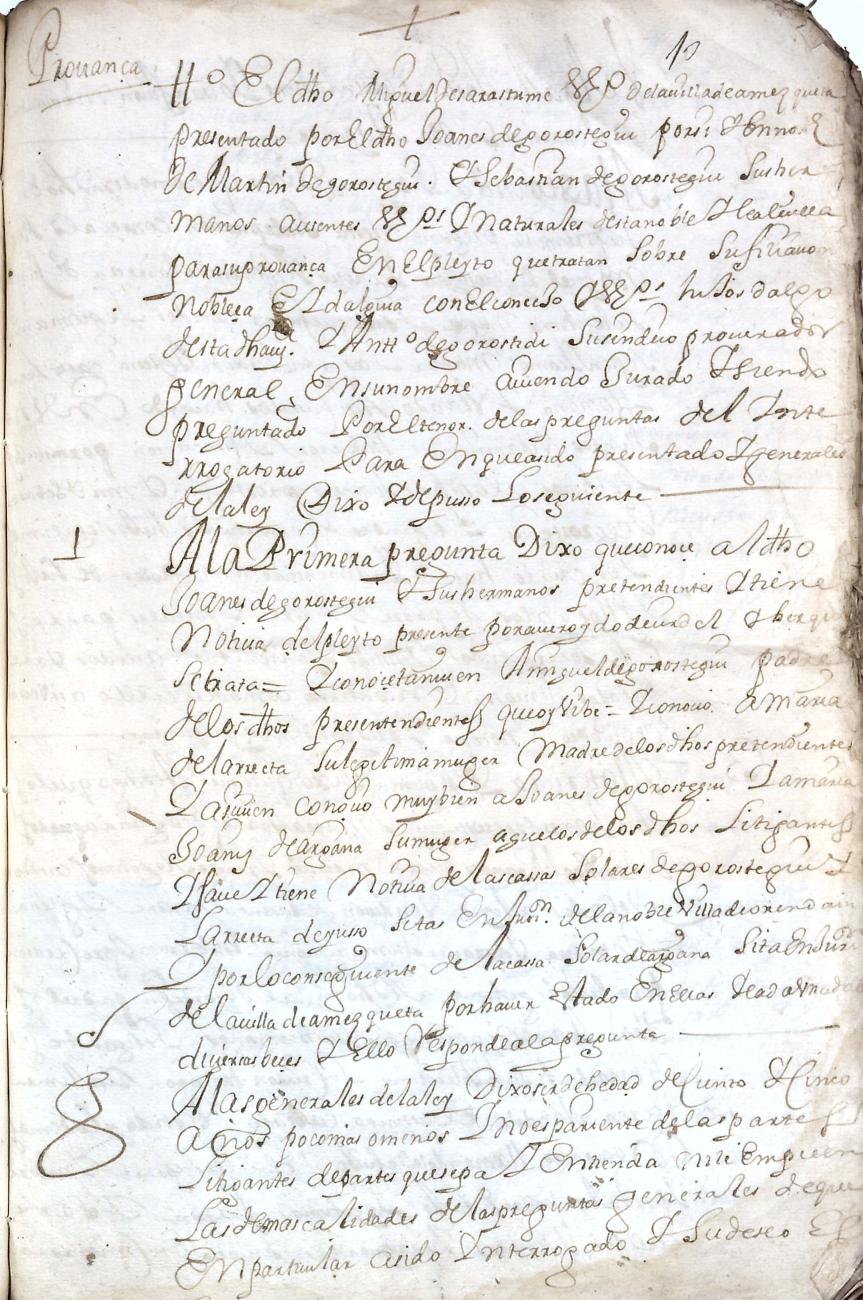 Provança
tto El dho Miguel de sarastume Vzo de la villa de amezqueta
presentado por El dho Joanes de gorostegui por si & En no
de Martin de gorostegui. & Sebastian de gorostegui Sus her
manos aussentes VZos & Naturales desta noble & leal villa
para su provança En El pleyto que tratan sobre su filiaçion
nobleça E ydalguia con El conçejo & VZos hijosdalgo
desta dha vi. & Antto de gorostidi Su sindico procurador
general, En su nombre aviendo Jurado & siendo
preguntado Por El tenor. de las preguntas del Ynte
rrogatorio Para En que a sido presentado & generales
de la ley Dixo & depusso Lo seguiente
1 A la Primera pregunta Dixo que conoce al dho
Joanes de gorostegui & Sus hermanos pretendientes & tiene
Notiçia del pleyto presente por aver oydo deçir del &
se trata = & conoce tanvien A miguel de gorostegui padre
de los dhos presentendientes que oy Vibe = & conocio a Maria
de larreta su legitima muger Madre de los dhos pretendientes
& tanvien conocio muy bien a Joanes de gorostegui & a maria
Joanz de argana su muger aguelos de los dhos Litigantes
& save & tiene Notiçia de las cassas Solares de gorostegui &
Larreta de yusso sitas En Juron. de la noble Villa de orendain
& por lo conseguiente de la cassa Solar de argana Sita En Juron
de la villa de amezqueta por haver Estado En Ellas
diversas beces & Ello Responde a la pregunta
A las generales de la ley Dixo ser de hedad de Cinto & Cinco
años poco mas o menos & no es pariente de las partes
Litigantes de partes que sepa & Entienda ni le Empecen
Las demas calidades de las preguntas generales de que
En particular a sido & nterrogado & Su deseo Es